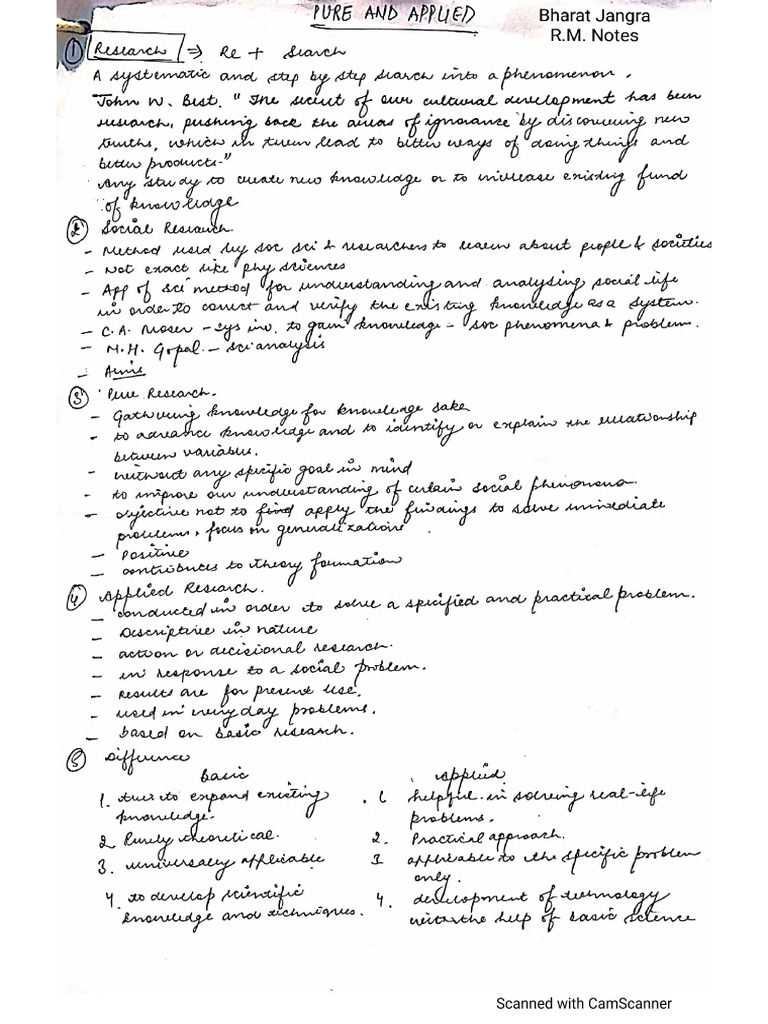 PURE AND APPLIED
Bharat Jangra
R.M. Notes
① Research ⇒ Re + Search
A systematic and step by step search into a phenomenon.
John W. Best. "The secret of our cultural development has been
research, pushing back the areas of ignorance by discovering new
truths, which in turn lead to better ways of doing things and
better products."
Any study to create new knowledge or to increase existing fund
of knowledge
② Social Research.
- Method used by soc sci & researchers to learn about people & societies
- Not exact like phy sciences
- App of sci method for understanding and analysing social life
in order to correct and verify the existing knowledge as a system.
- C.A. Moser - sys inv. to gain knowledge - soc phenomena & problem.
- M.H. Gopal. - sci analysis
- Aims
③ Pure Research.
- Gathering knowledge for knowledge sake
- to advance knowledge and to identify or explain the relationship
between variable.
- without any specific goal in mind
- to improve our understanding of certain social phenomena.
- objective not to find apply the findings to solve immediate
problems, focus on generalizations
- Positive
- contributes to theory formation
④ Applied Research.
- conducted in order to solve a specified and practical problem.
- Descriptive in nature
- action or decisional research.
- in response to a social problem.
- results are for present use.
- used in everyday problems.
- based on basic research.
⑤ Difference
basic
1. tries to expand existing
knowledge.
2. Purely theoretical.
3. universally applicable
4. to develop scientific
knowledge and techniques.
Applied
1. helpful in solving real-life
problems.
2. Practical approach.
3 applicable to the specific problem
only.
4. development of technology
with the help of basic science
Scanned with CamScanner